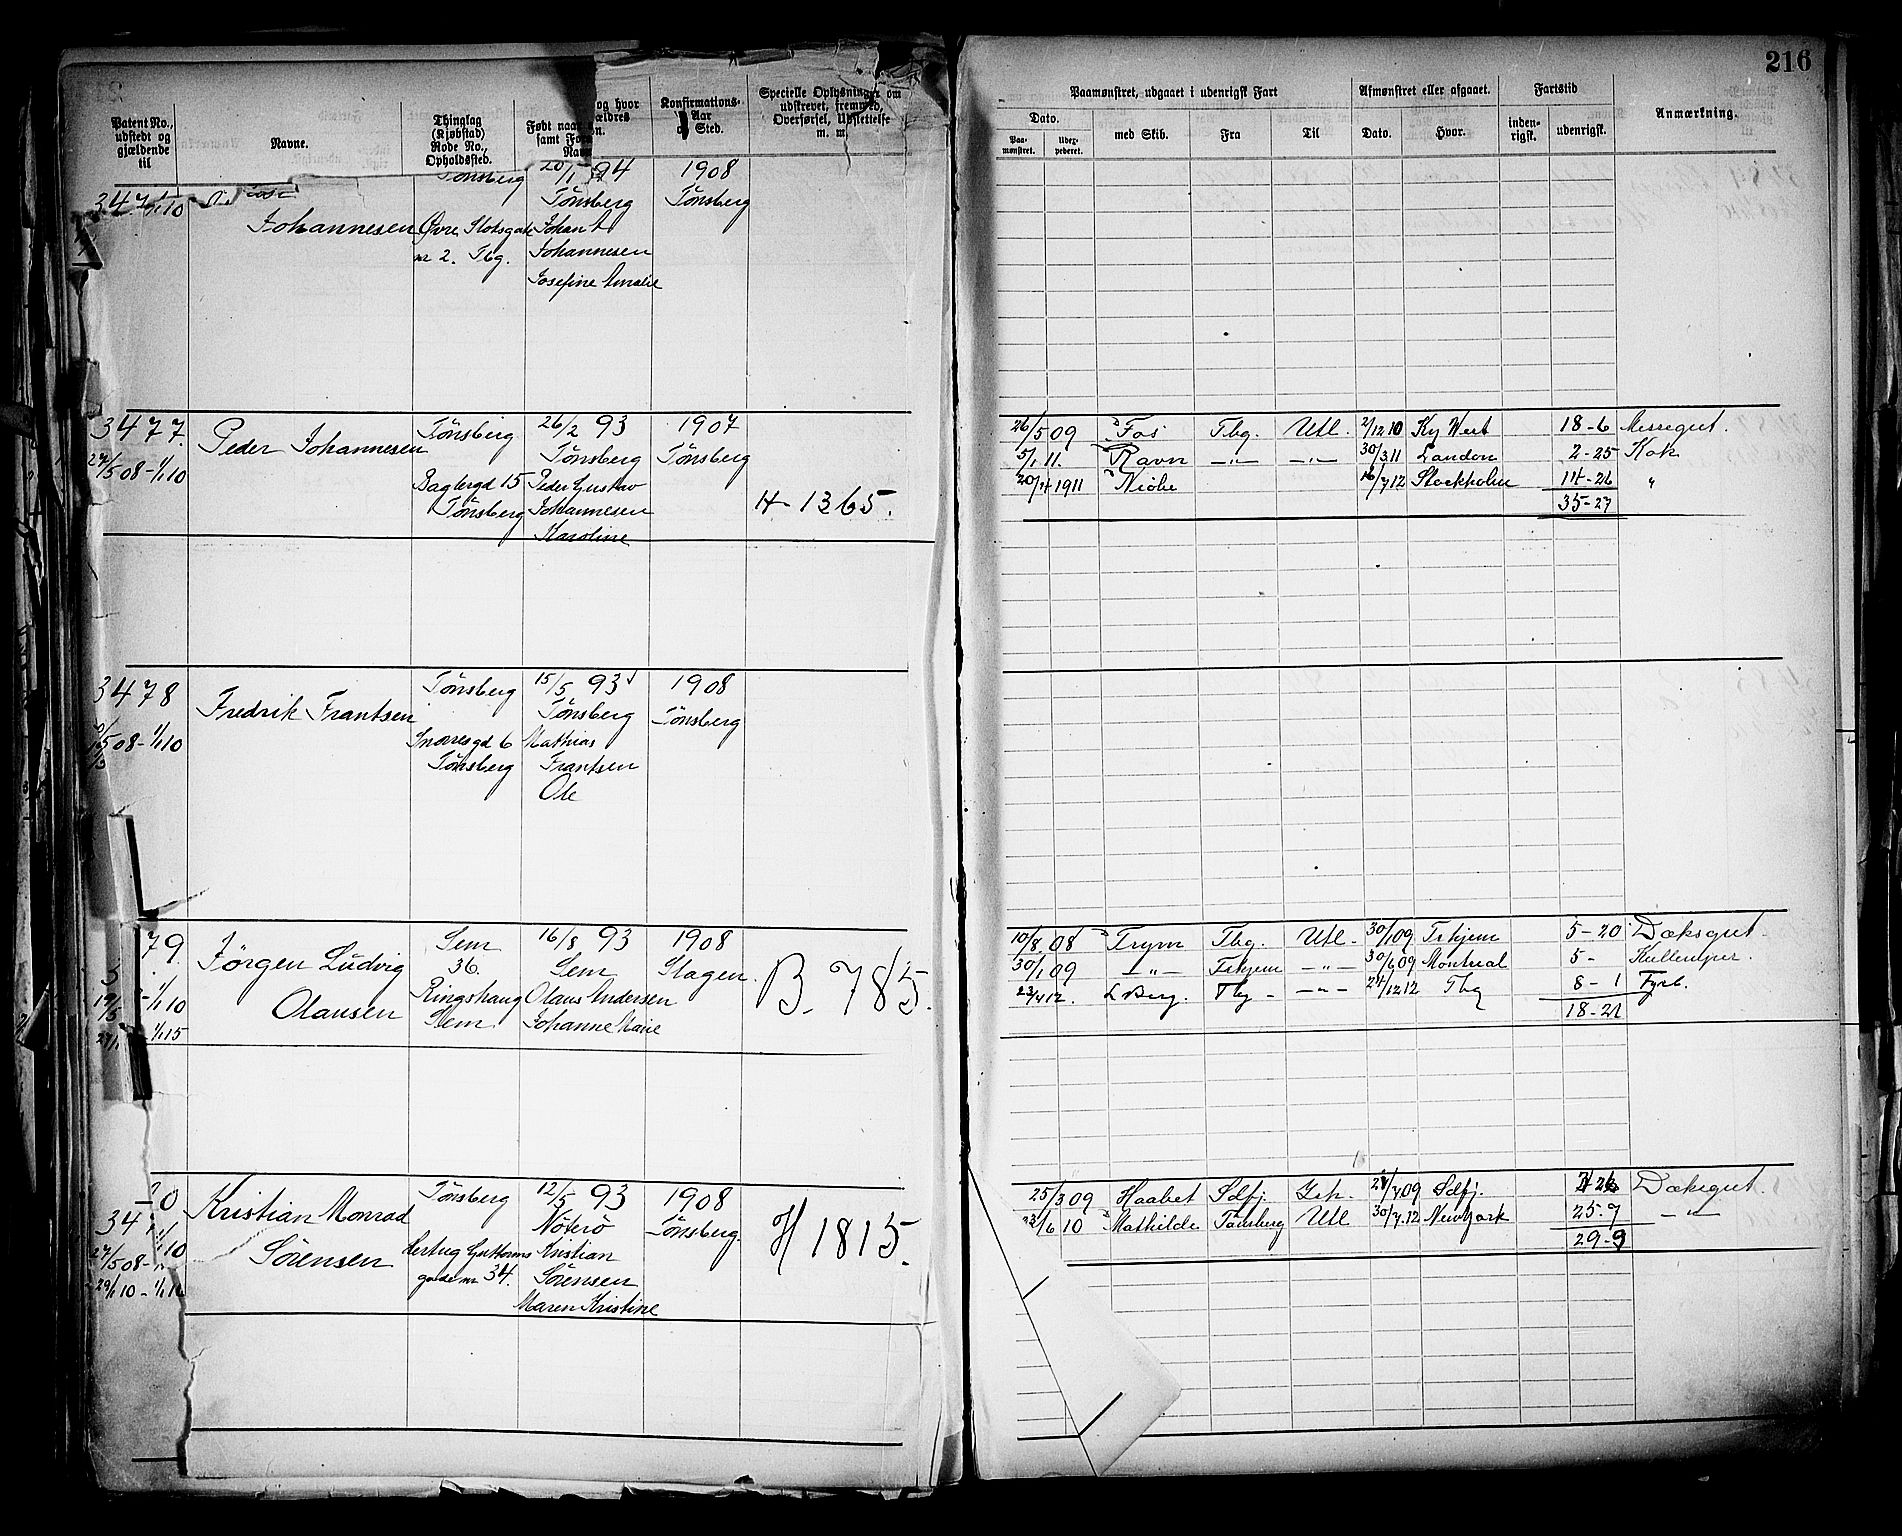 216
Patent No., udstedt og gjældende til
Navne.
Thinglag (Kjøbstad) Rode No., Opholdssted.
Født naar og hvor samt Forældres Navn.
Konfirmations-Aar og Sted.
Specielle Oplysninger om udskrevet, fremmød, Overførsel, Udslettelse m. m.
Paamønstret, udgaaet i udenrigsk Fart
Dato.
Paa-mønstret.
Uder-pederet.
med Skib.
Fra
Til
Afmønstret eller afgaaet.
Dato.
Hvor.
Fartstid
inden-rigsk.
udenrigsk.
Anmærkning.
Tønsberg 20/1 94 1908
Tönsberg Tönsberg
Johannesen Øvre Slotsgade Johan A
nr 2. Tbg. Johannesen
Josefine Amalie
3477. Peder Johannesen Tönsberg 26/2 93 1907
27/5 08 - 1/1 10 Tönsberg Tönsberg
Baglergd 15 Peder Gustav
Tönsberg Johannesen H - 1365.
Karoline
26/5 09 Fos Tbg. Utl. 2/12 10 Ky West 18-6 Messegut.
5/1 11. Ravn -"- -"- 30/3 11 London 2-25 Kok
20/4 1911 Niobe 16/7 12 Stockholm 14-26 "
35-27
3478 Fredrik Frantsen Tönsberg 15/5 93 1908
5 08 - 1/1 10 Tönsberg Tönsberg
Snorresgd 6 Mathias
Tönsberg Frantsen
Ole
79 Jørgen Ludvig Olausen Sem 16/8 93 1908
36. Sem Slagen
1/1 10 Ringshaug Olaus Andersen B. 785.
1/1 15 Sem Johanne Marie
10/8 08 Trym Tbg. Utl. 30/1 09 Trhjem 5-20 Dæksgut.
30/1 09 -"- Trhjem -"- 30/6 09 Montreal 5- Kullemper.
23/4 12. L Berg. Tbg - -"- 24/12 12 Tbg 8-1 Fyrb.
18-21
34 0 Kristian Monrad Sörensen Tönsberg 12/5 93 1908
27/5 08 - 1/1 10 Nöterö Tönsberg.
29/1 10 - 1/1 Hertug Guttorms Kristian H 1815.
gade nr 34. Sörensen
Maren Kristine
25/3 09 Haabet Sdfj. Ish. 09 Sdfj. Dæksgut.
6 10 Mathilde Tönsberg Utl 30/7.12 New York 25.7 -"-
29-9